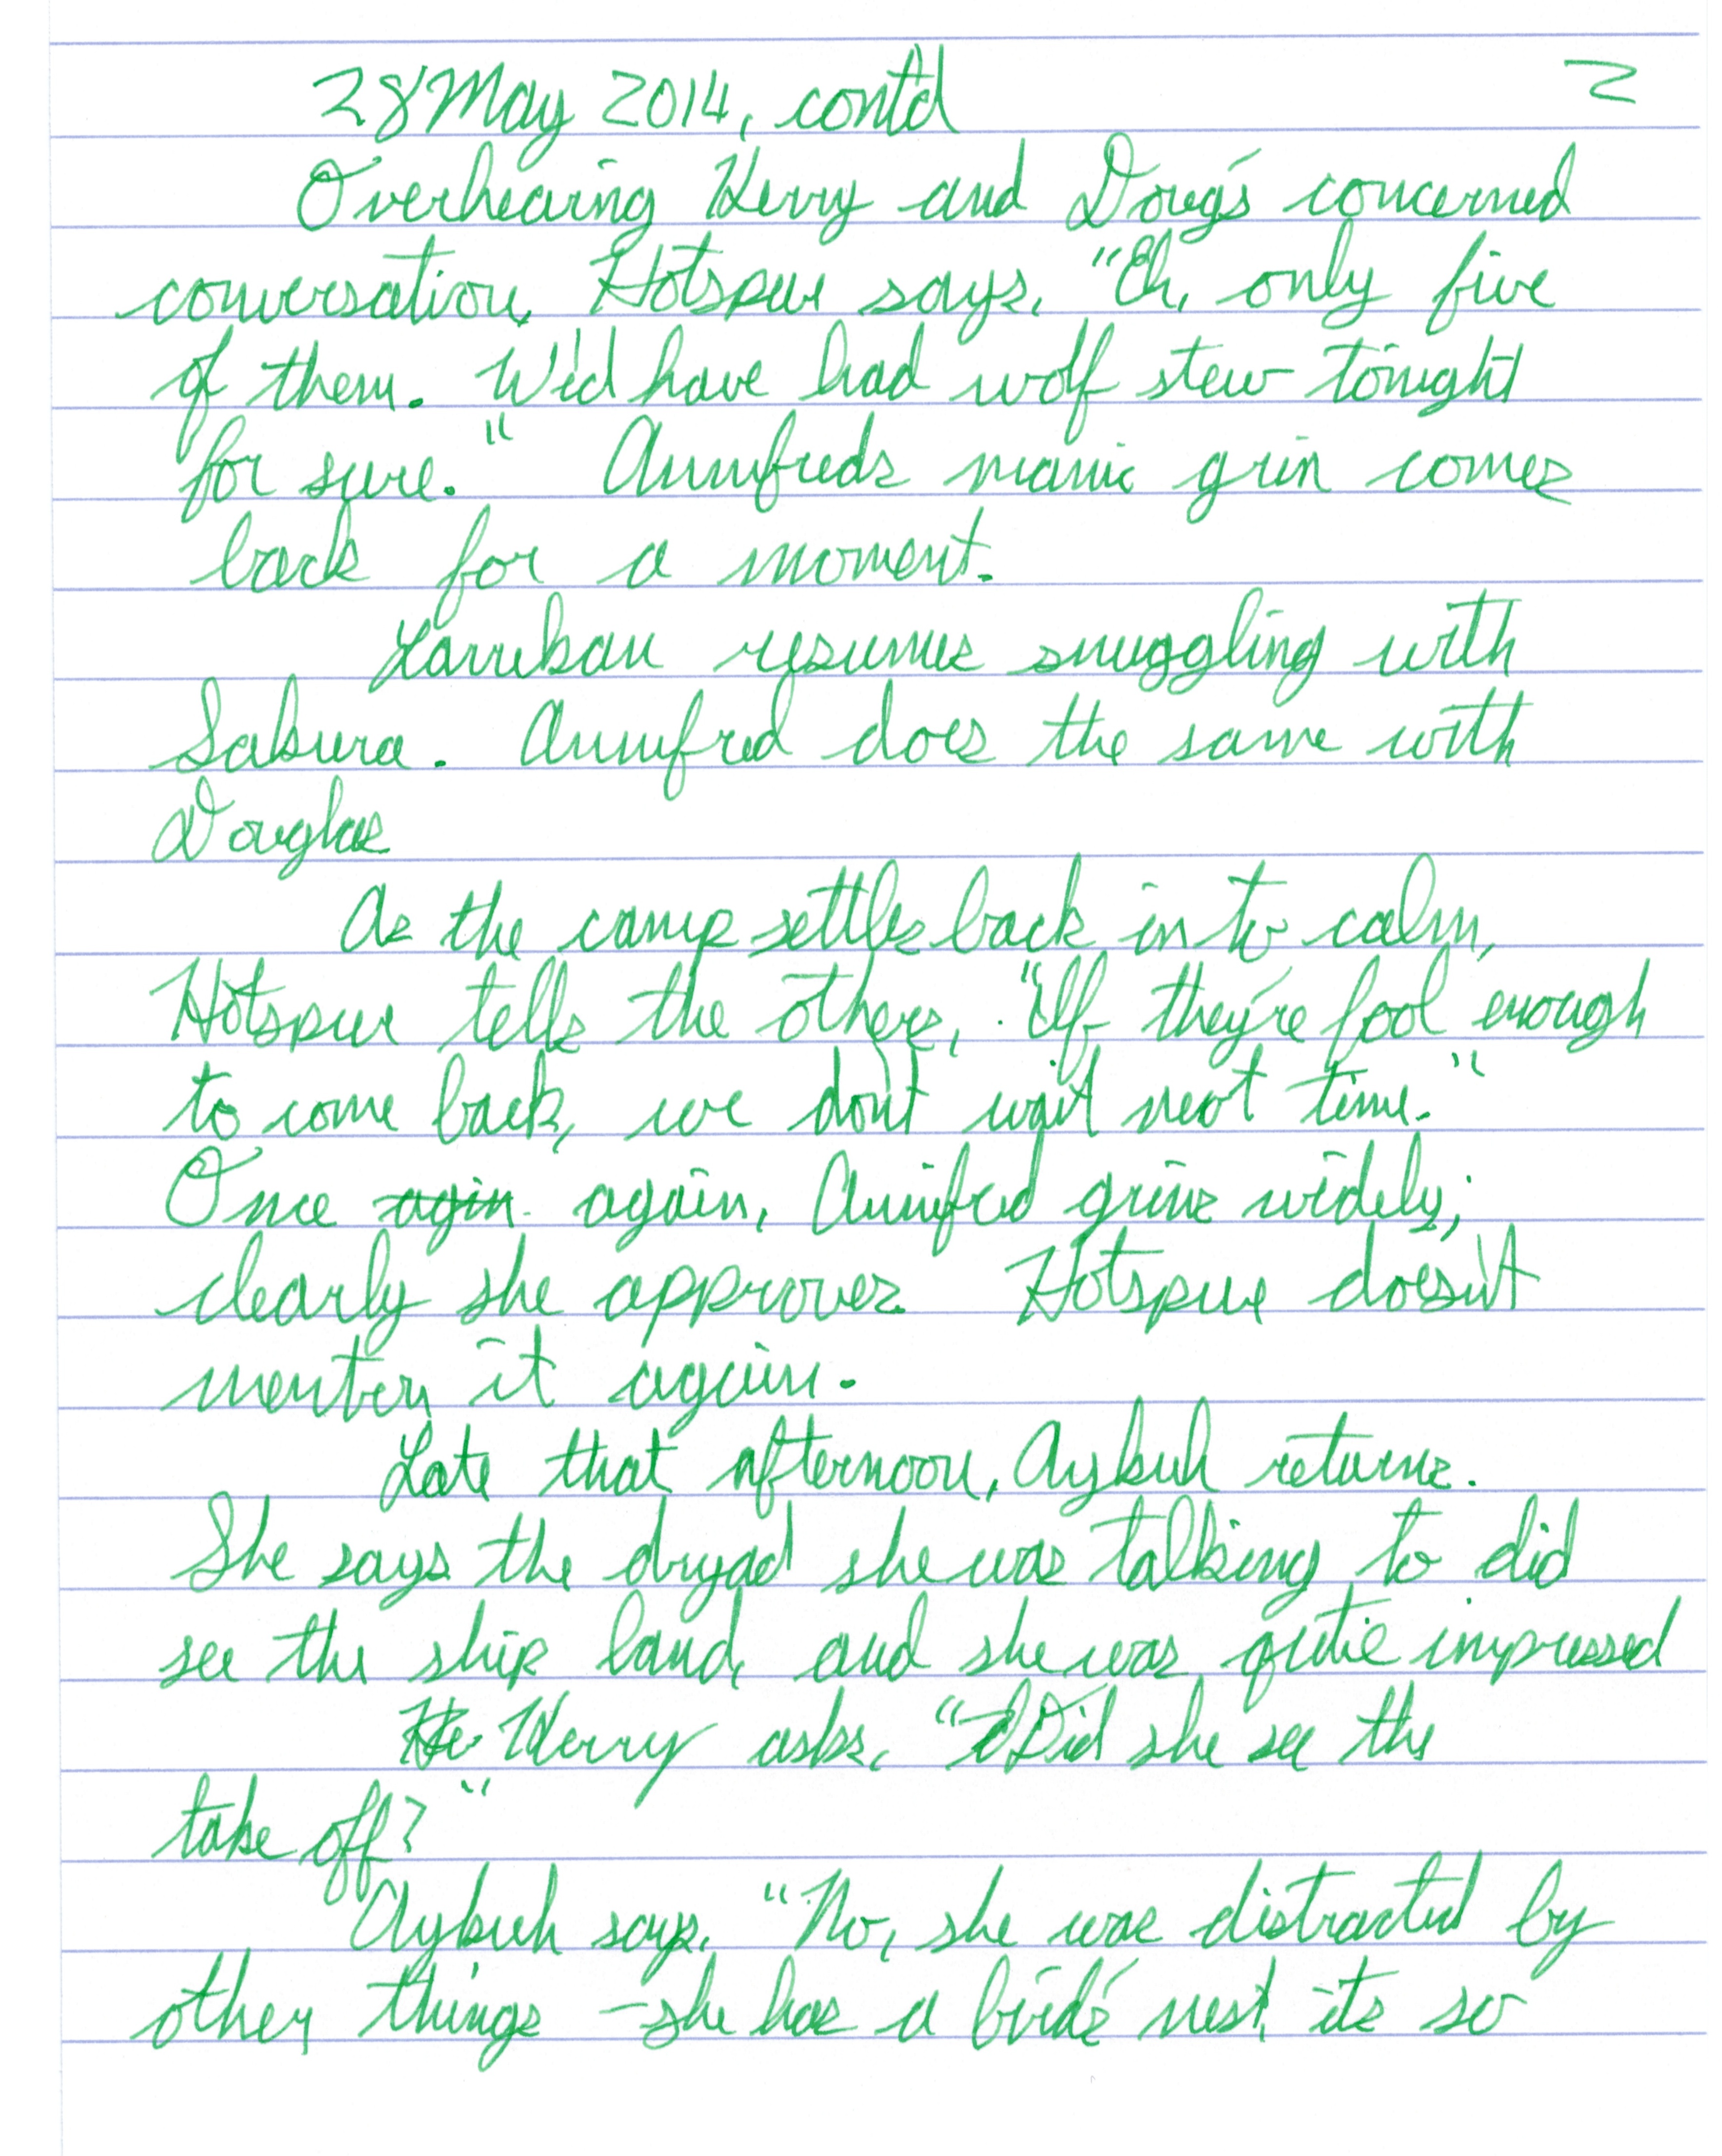 28 May 2014, cont'd 2
Overhearing Kerry and Doug's concerned
conversation, Hotspur says, "Eh, only five
of them. We'd have had wolf stew tonight
for sure." Annifred's manic grin comes
back for a moment.
Larrekan resumes snuggling with
Sakura. Annifred does the same with
Douglas
As the camp settles back in to calm,
Hotspur tells the others, "If they're fool enough
to come back, we don't wait next time."
Once agin again, Annifred grins widely;
clearly she approves. Hotspur doesn't
mention it again.
Late that afternoon, Aykuh returns.
She says the dryad she was talking to did
see the ship land, and she was qutie impressed
He Kerry asks, "Did she see the
take off?"
Aykuh says, "No, she was distracted by
other things - she has a bird's nest, its so